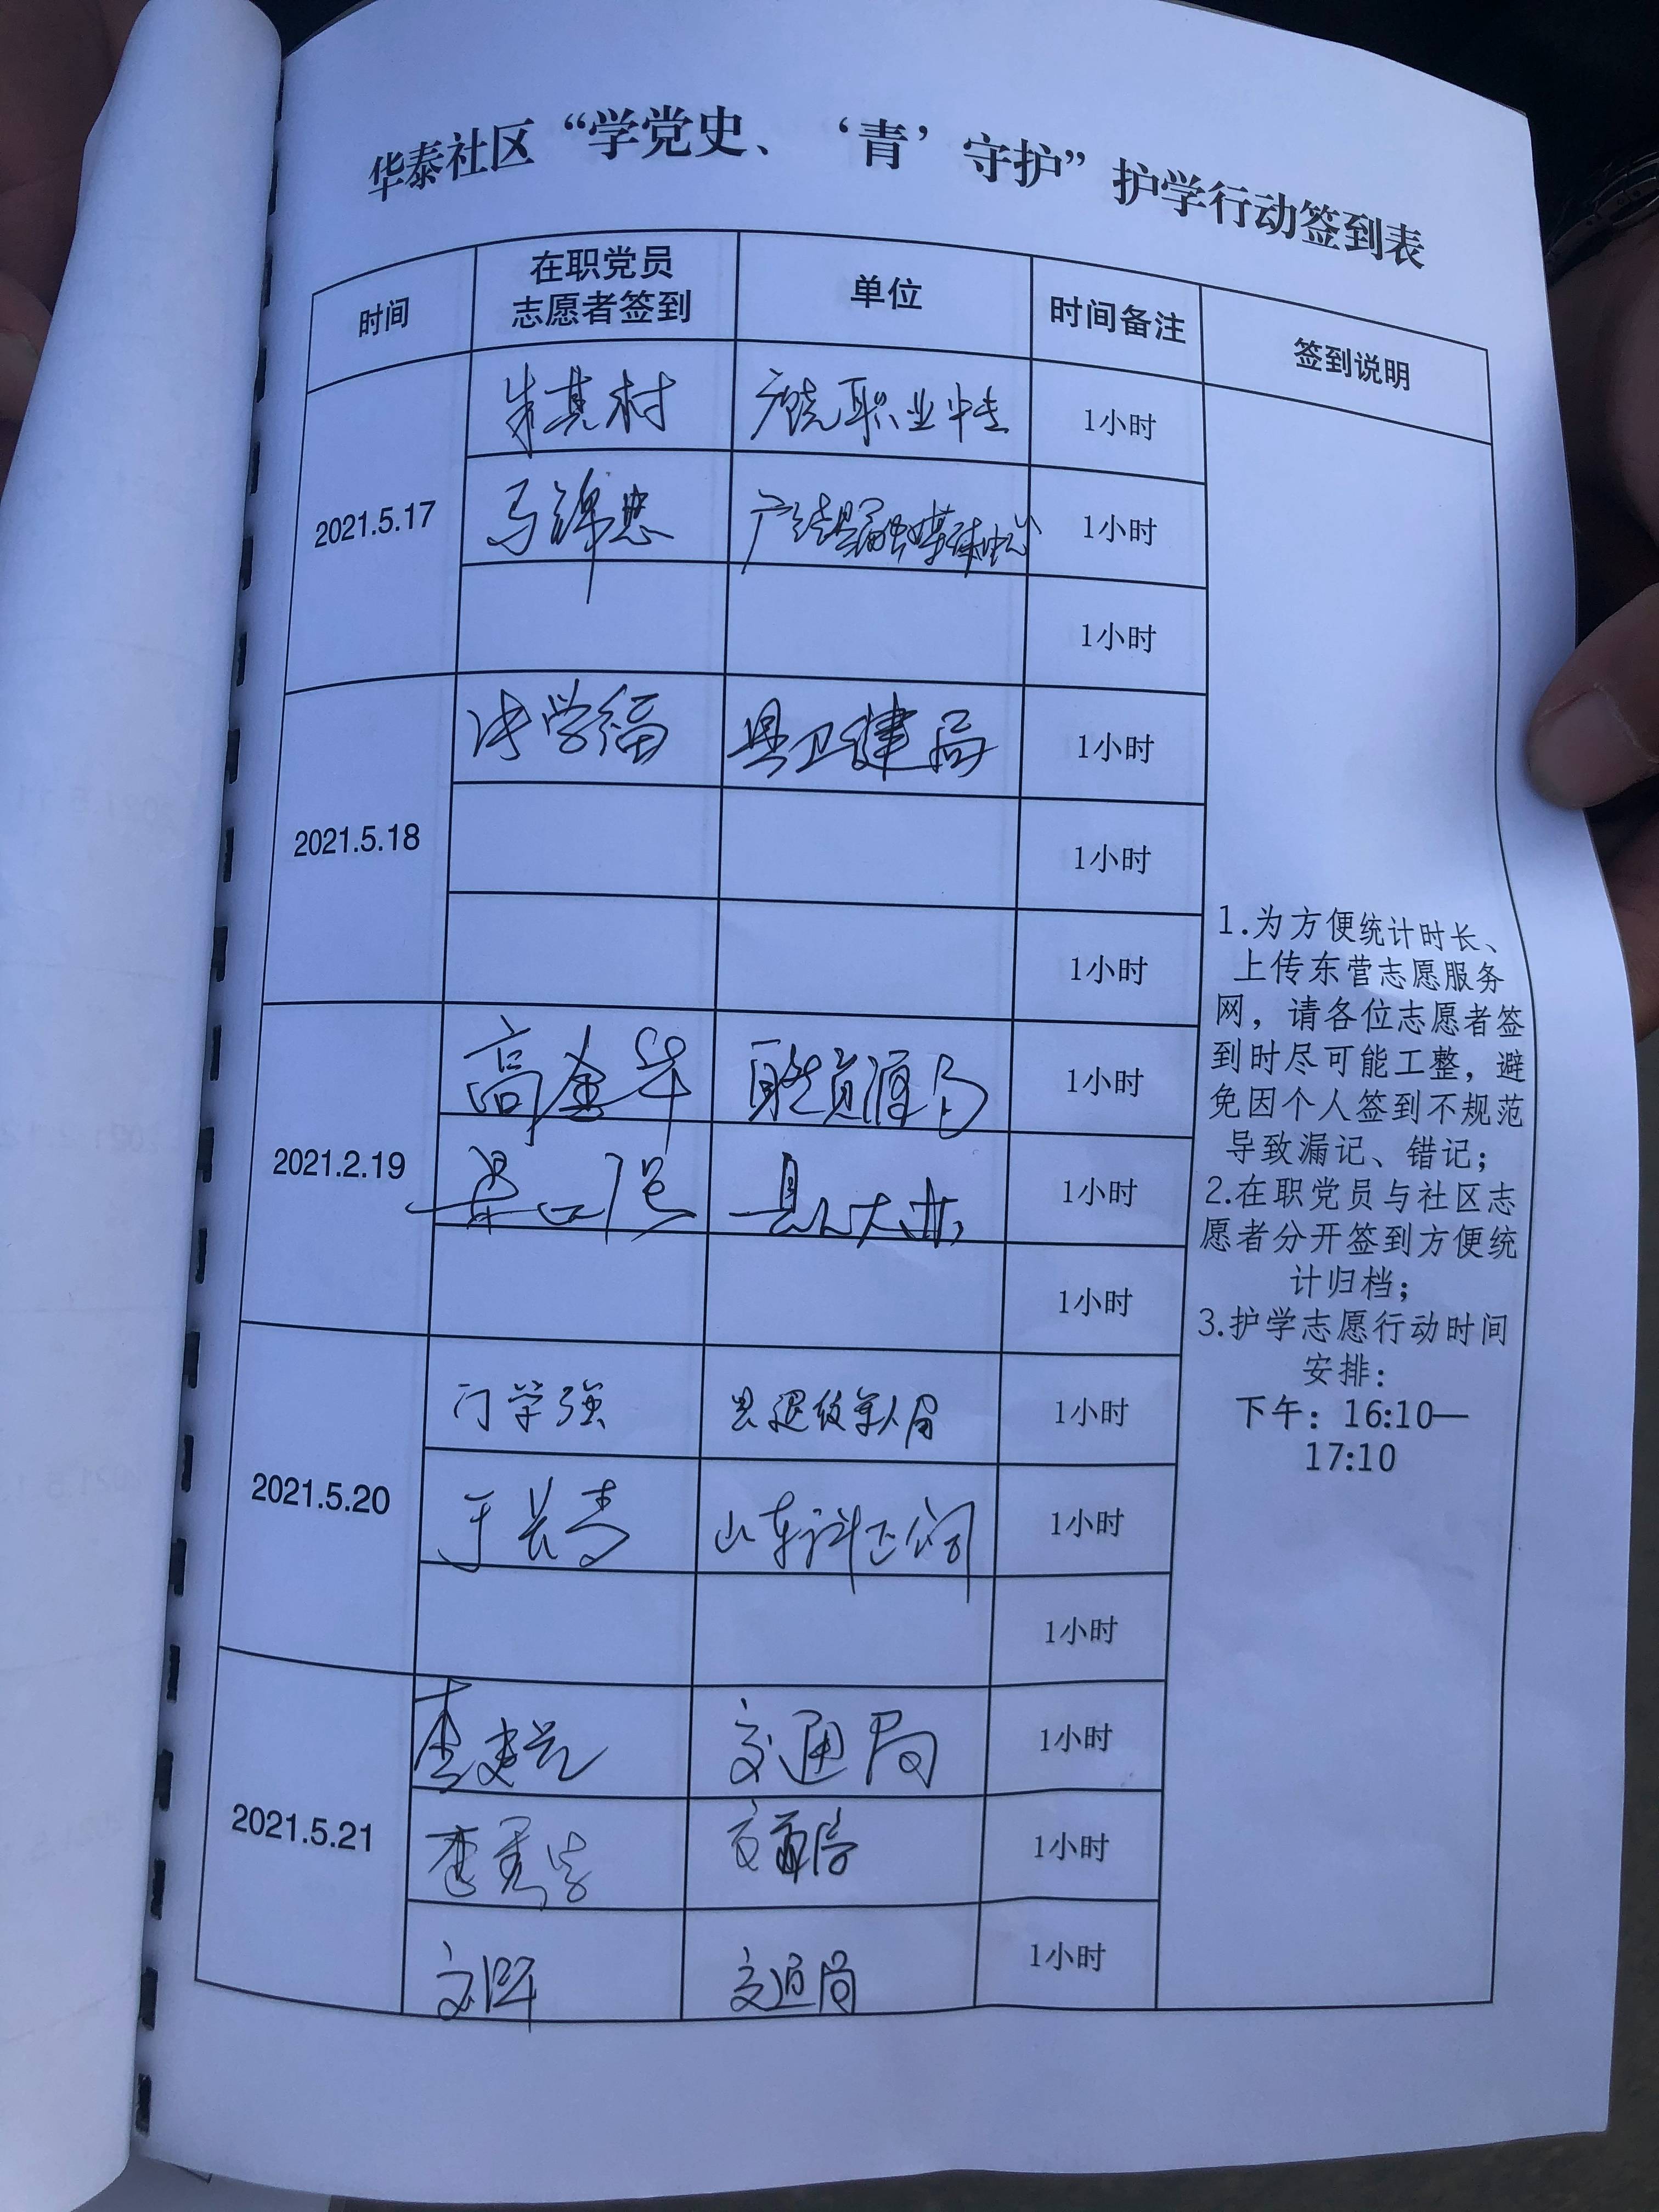 华泰社区“学党史、‘青’守护”护学行动签到表
时间 在职党员志愿者签到 单位 时间备注 签到说明
2021.5.17
朱其村 广饶职业中专 1小时
马锦忠 广饶县融媒体中心 1小时
1小时
2021.5.18
学福 县卫健局 1小时
1小时
1小时
2021.2.19
高金华 自然资源局 1小时
县人大办 1小时
1小时
2021.5.20
门学强 县退役军人局 1小时
于长青 山东 公司 1小时
1小时
2021.5.21
李建 交通局 1小时
李 交通局 1小时
交通局 1小时
1.为方便统计时长、
上传东营志愿服务
网，请各位志愿者签
到时尽可能工整，避
免因个人签到不规范
导致漏记、错记；
2.在职党员与社区志
愿者分开签到方便统
计归档；
3.护学志愿行动时间
安排：
下午：16:10—
17:10